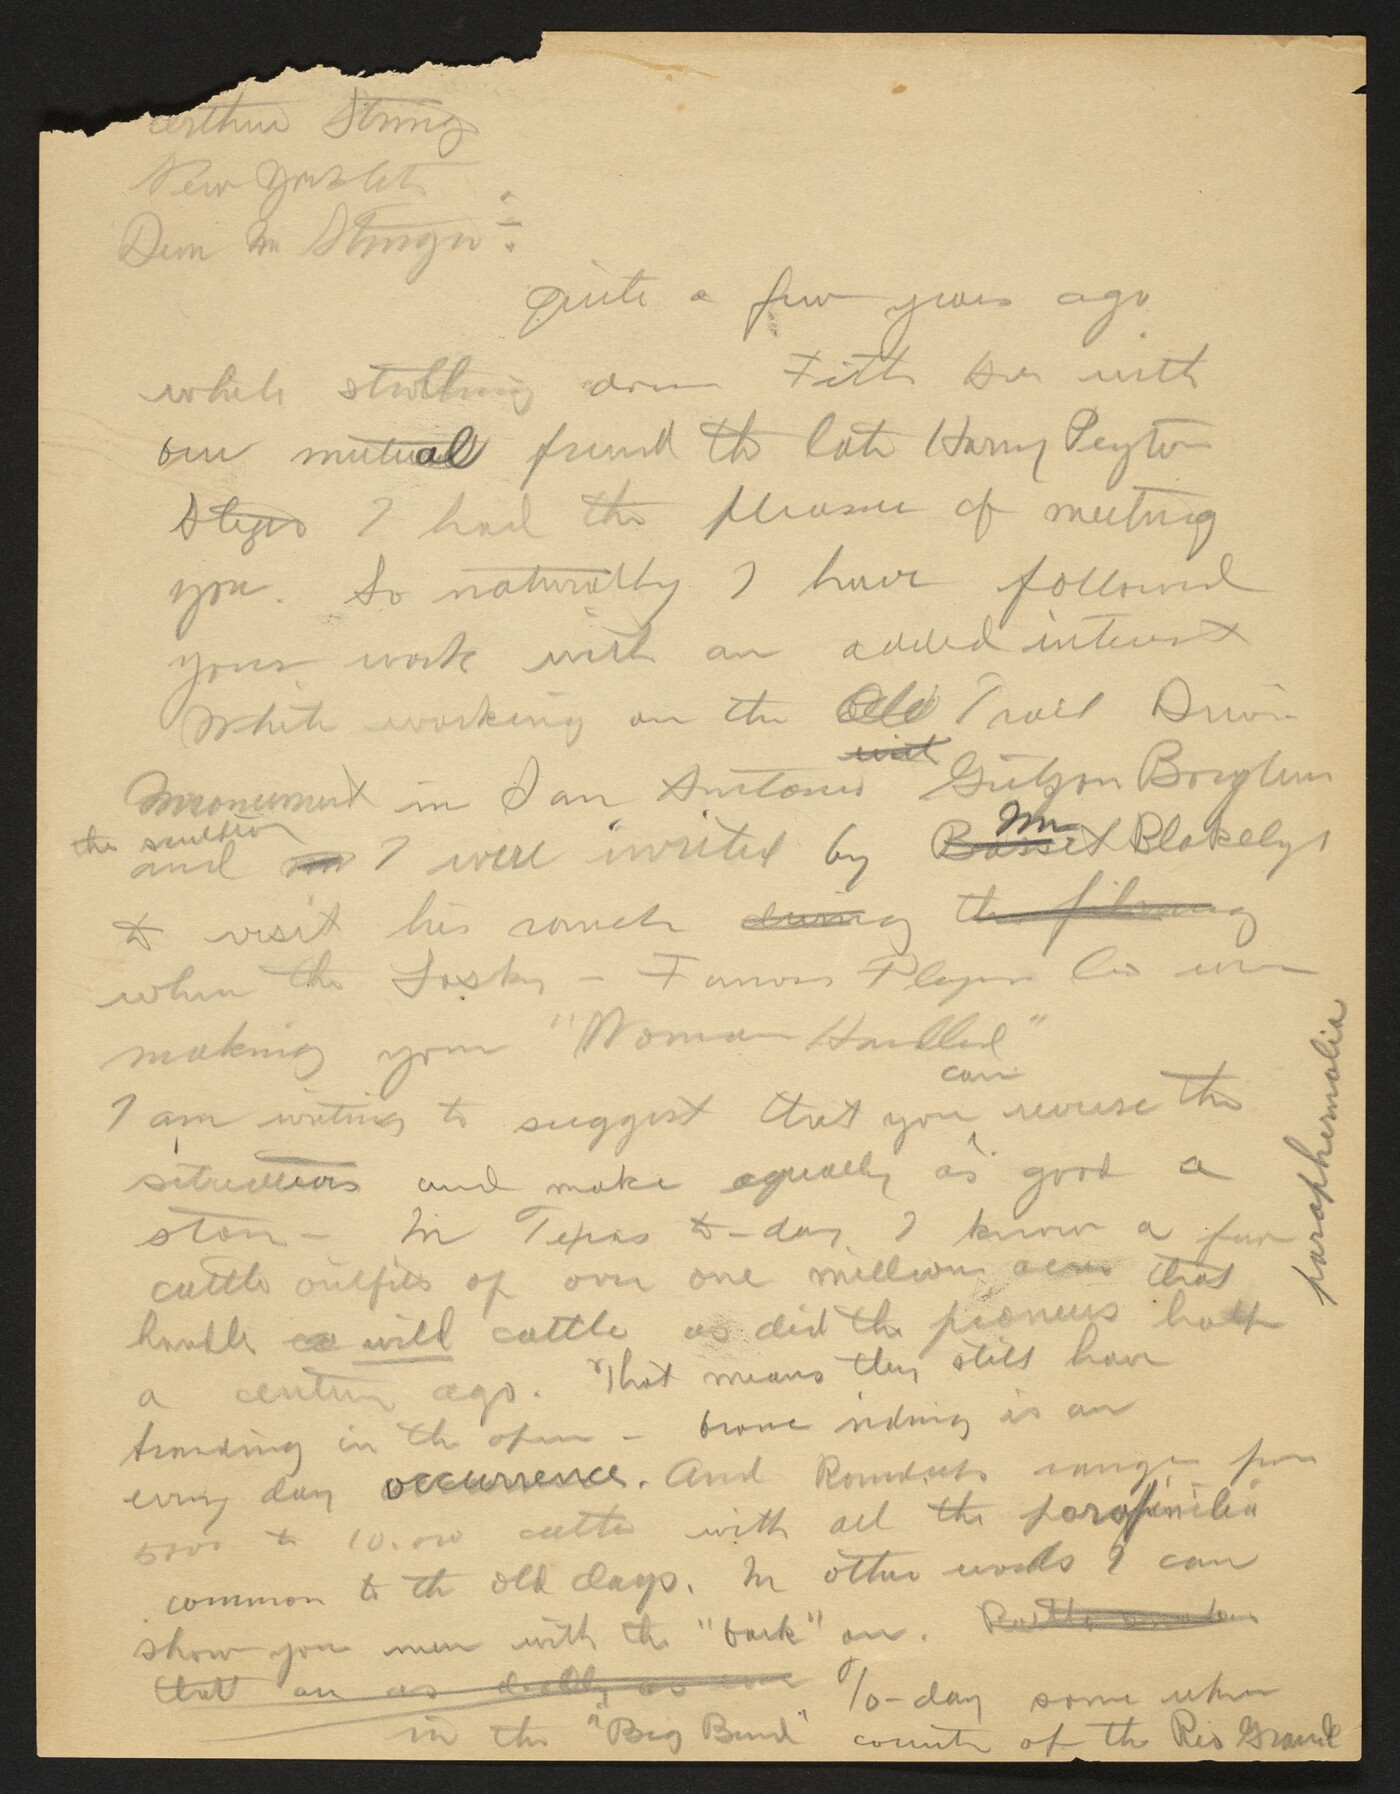 Arthur String
New York City
Dear Mr Stringer:
Quite a few years ago
while strolling down Fifth Ave with
our mutual friend the late Harry Peyton
Steger I had the pleasure of meeting
you. So naturally I have followed
your work with an added interest
While working on the Old Trail Driver
with
Monument in San Antonio Gutzon Borglum
the sculptor
and I were invited by Basset Mr Blakely
to visit his ranch during the filming
when the Lasky - Famous Players Co were
making your "Woman Handled"
can
I am writing to suggest that you reverse the
situations and make equally as good a
story - In Texas to-day I know a few
cattle outfits of over one million acres that
handle wild cattle as did the pioneers half
a century ago. That means they still have
branding in the open - bronc riding is an
every day occurrence. And Roundups range from
5000 to 10.000 cattle with all the parafinilia
common to the old days. In other words I can
show you men with the "bark" on. Rattle snakes
that are as deadly as ever To-day some where
in the "Big Bend" country of the Rio Grande
paraphernalia